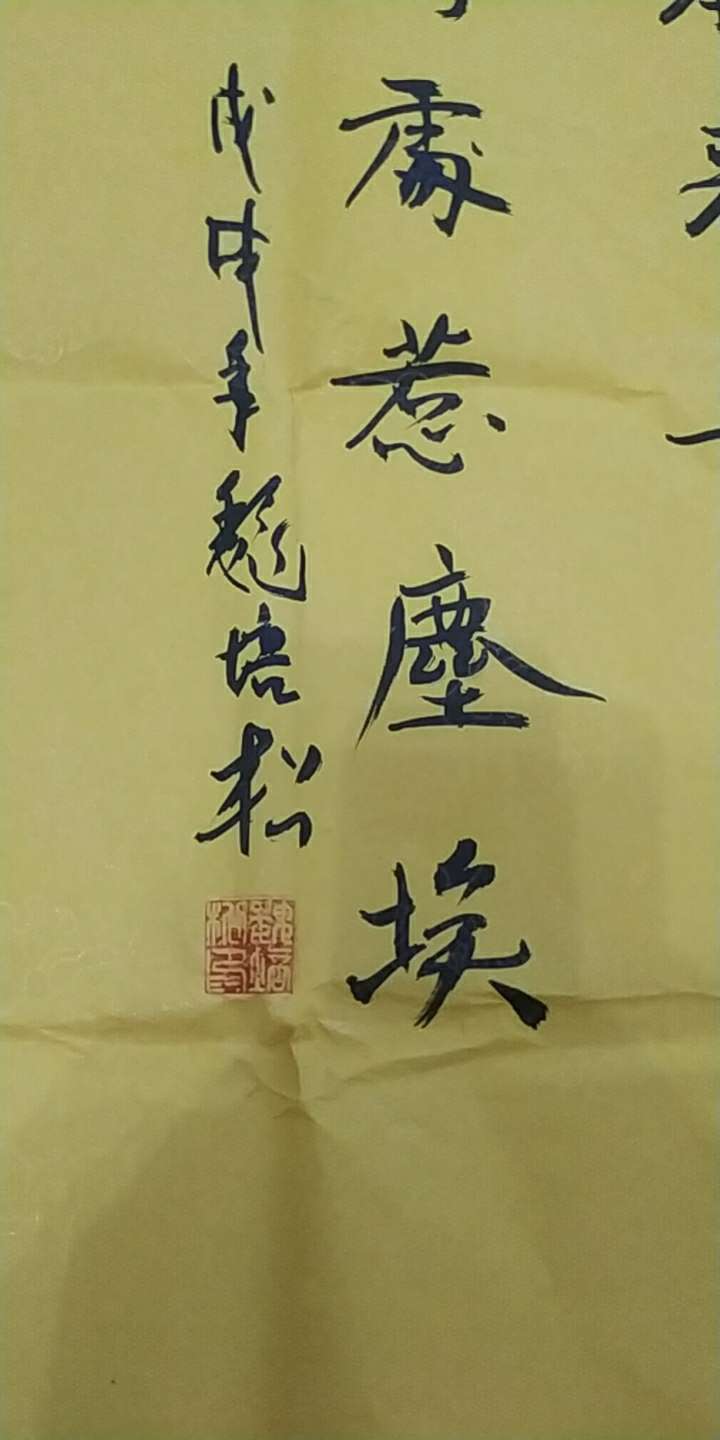 處惹塵埃
戊申年魏培松
魏培松印